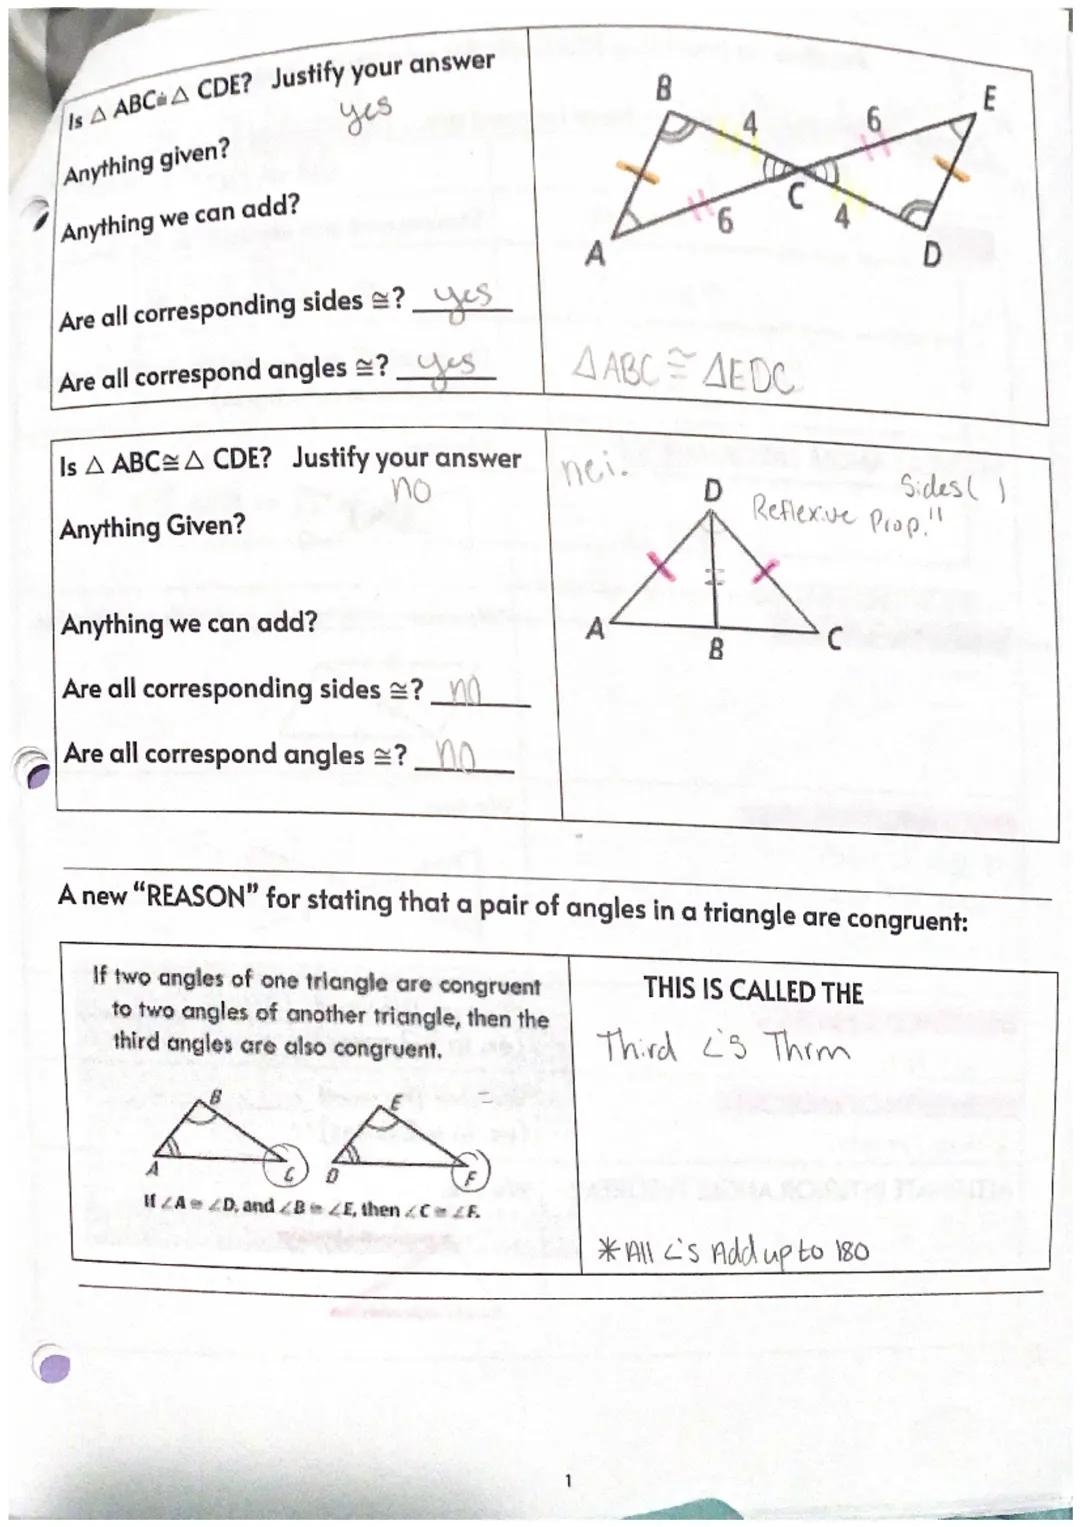 Is △ ABC≅△ CDE? Justify your answer
yes
Anything given?
Anything we can add?
Are all corresponding sides ≅? yes
Are all correspond angles ≅? yes
B
4
6
E
C
6
4
A
D
△ABC ≅ △EDC
Is △ ABC≅△ CDE? Justify your answer
no
Anything Given?
Anything we can add?
Are all corresponding sides ≅? no
Are all correspond angles ≅? no
nei.
Sides( )
D
Reflexive Prop."
A
B
C
A new “REASON” for stating that a pair of angles in a triangle are congruent:
If two angles of one triangle are congruent
to two angles of another triangle, then the
third angles are also congruent.
B
E
=
A
C
D
F
If ∠A ≅ ∠D, and ∠B ≅ ∠E, then ∠C ≅ ∠F.
THIS IS CALLED THE
Third ∠'s Thrm
*All ∠'s Add up to 180
1